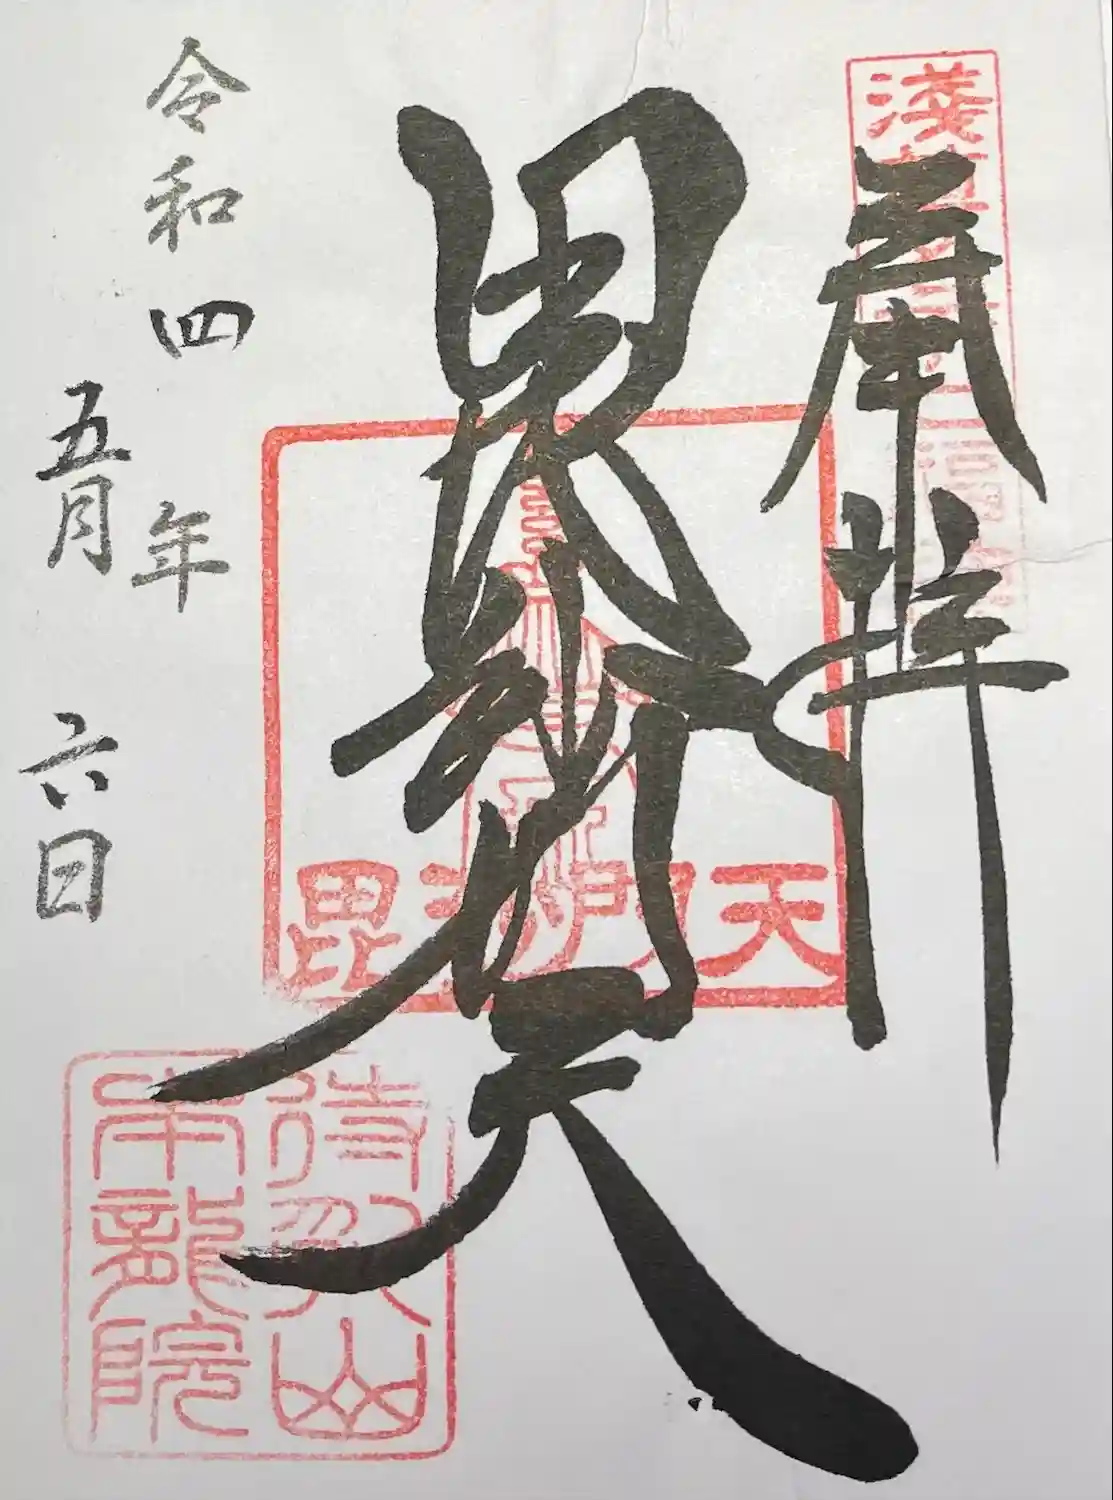 奉拝
毘沙門天
令和四年
五月六日
毘沙門天
待乳山
本龍院